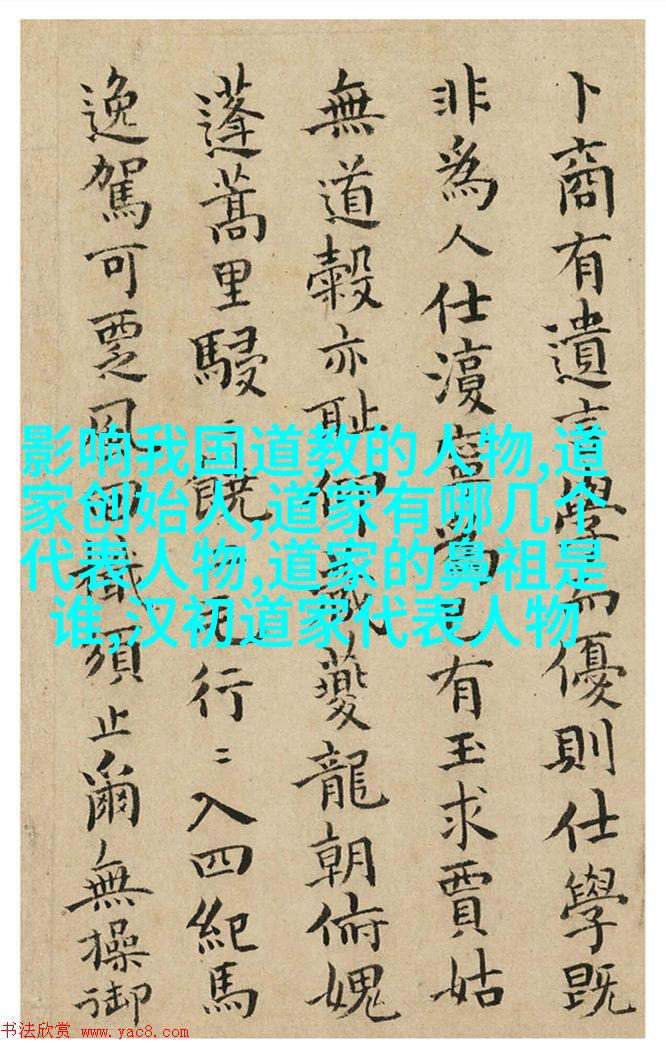 卜商有遺言學而優則仕學既
非爲人仕豈爲己有玉求賈姑
無道穀亦恥仰夔龍朝俯媿
蓬蒿里駸行〻入四紀馬
逸駕可覂風須止爾無操御
影响我国道教的人物,道
家创始人,道家有哪几个
代表人物,道家的鼻祖是
谁,汉初道家代表人物
书法欣赏 www.yac8.com